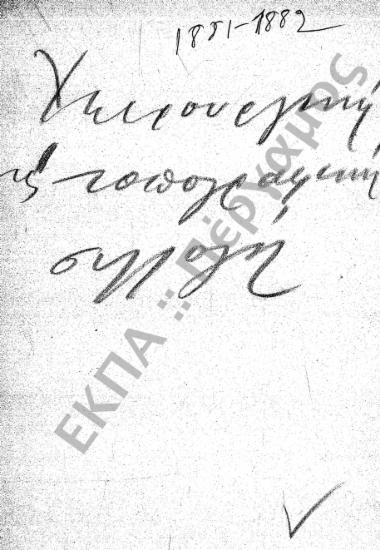 1881-1882
Χειρουργική
τοπογραφική
συλλογή
ΕΚΠΑ ::: Πέργαμος